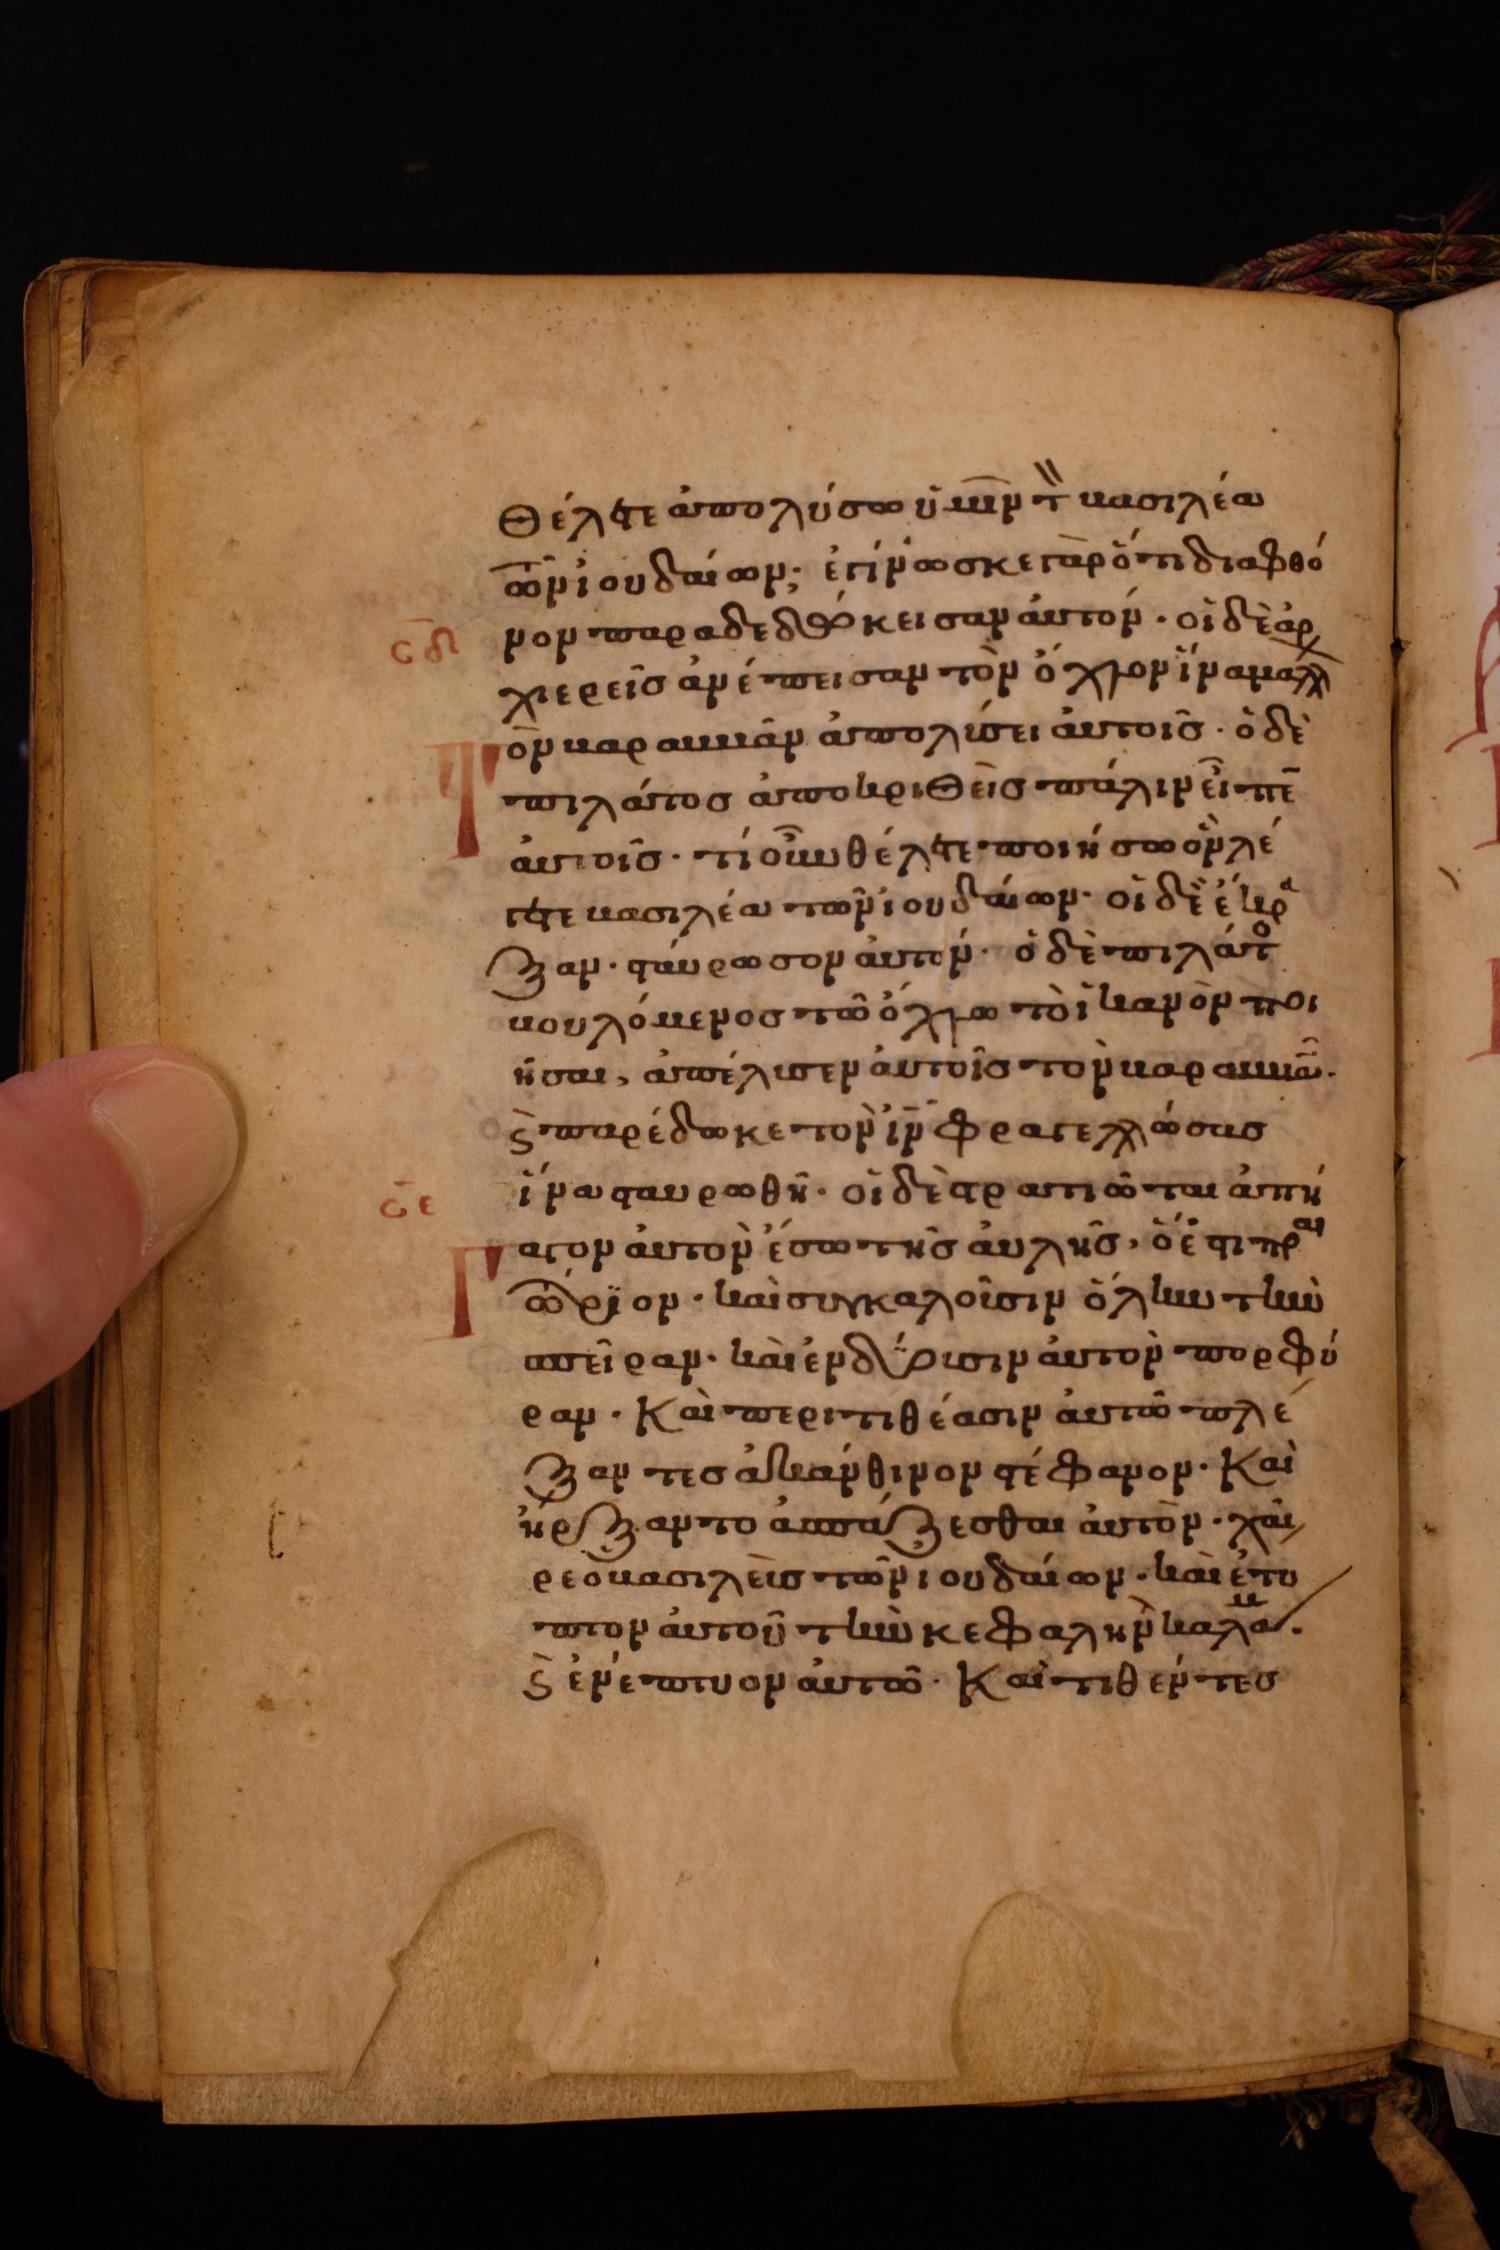 θέλετε ἀπολύσω ὑμῖν τὸν βασιλέα
τῶν ἰουδαίων; ἐγίνωσκε γὰρ ὅτι διὰ φθό
νον παραδεδώκεισαν αὐτόν· οἱ δὲ ἀρ
σδ
χιερεῖς ἀνέπεισαν τὸν ὄχλον ἵνα μᾶλλ
ον βαραββᾶν ἀπολύσει αὐτοῖς· ὁ δὲ
πιλάτος ἀποκριθεὶς πάλιν εἶπε
αὐτοῖς· τί οὖν θέλετε ποιήσω ὃν λέ
γετε βασιλέα τῶν ἰουδαίων· οἱ δὲ ἔκρα
ξαν· σταύρωσον αὐτόν· ὁ δὲ πιλάτο
βουλόμενος τῷ ὄχλω τὸ ἱκανὸν ποι
ῆσαι, ἀπέλυσεν αὐτοῖς τὸν βαραββᾶν.
ϛ̀ παρέδωκε τὸν ἰν̅ φραγελλώσας
ἵνα σταυρωθῆ· οἱ δὲ στρατιῶται ἀπή
σε
γαγον αὐτὸν ἔσω τῆς αὐλῆς, ὅ ἐστι πραι
τώριον· καὶ συγκαλοῦσιν ὅλην τὴν
σπεῖραν· καὶ ἐνδύουσιν αὐτὸν πορφύ
ραν· Καὶ περιτιθέασιν αὐτῶ πλέ
ξαντες ἀκάνθινον στέφανον· Καὶ
ἤρξαντο ἀσπάζεσθαι αὐτὸν· χαῖ
ρε ὁ βασιλεὺς τῶν ἰουδαίων· καὶ ἔτυ
πτον αὐτοῦ τὴν κεφαλὴν καλάμ.
ϛ̀ ἐνέπτυον αὐτῶ· Καὶ τιθέντες